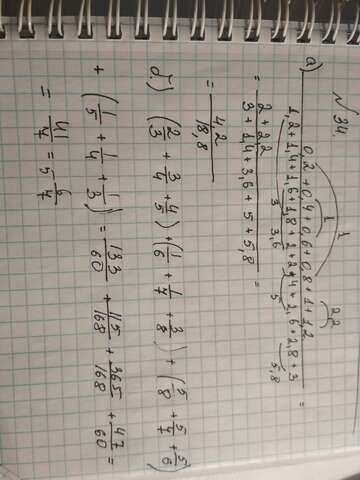 №34.
1
1 2,2
а) 0,2+0,4+0,6+0,8+1+1,2 =
1,2+1,4+1,6+1,8+2+2,4+2,6+2,8+3
3 3,6 5 5,8
= 2+2,2 / 3+1,4+3,6+5+5,8 =
= 4,2 / 18,8
б) (2/3 + 3/4 + 4/5) + (1/6 + 1/7 + 3/8) + (5/8 + 5/7 + 5/6)
+ (1/5 + 1/4 + 1/3) = 133/60 + 115/168 + 365/168 + 47/60 =
= 41/7 = 5 6/7